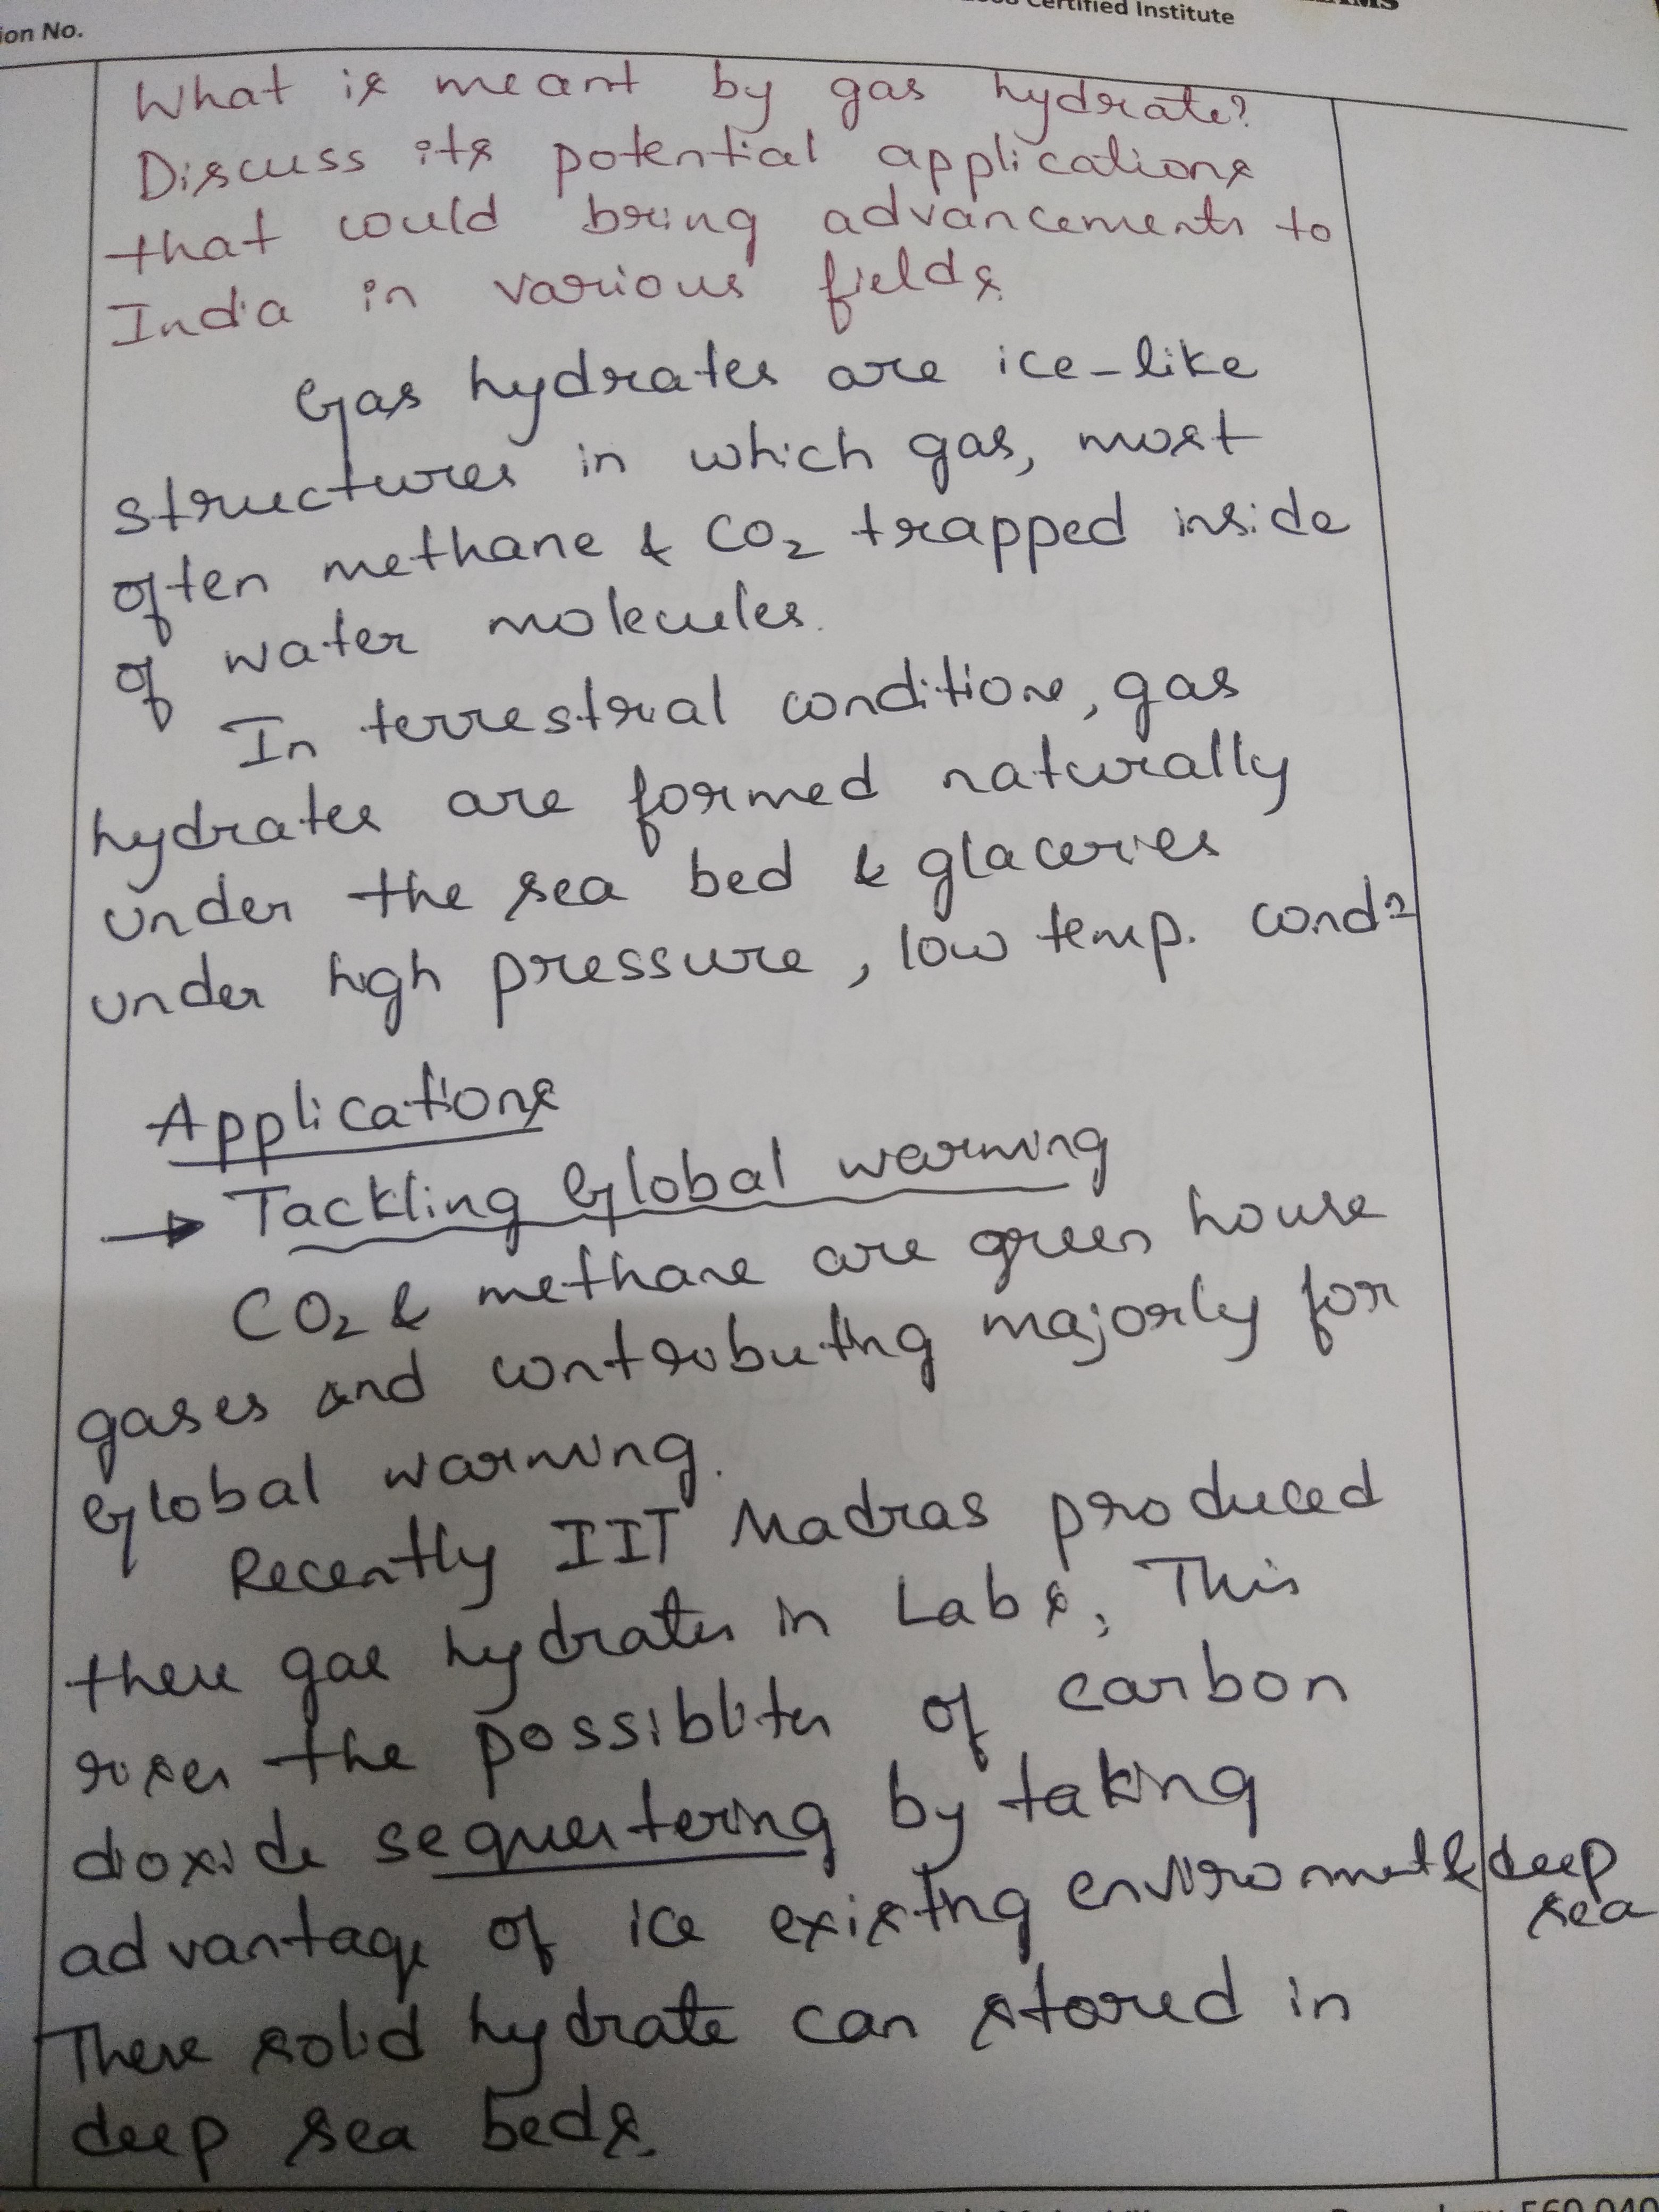 ion No.
Certified Institute
What is meant by gas hydrate?
Discuss its potential applications
that could bring advancements to
India in various fields
Gas hydrates are ice-like
structures in which gas, most
often methane & CO₂ trapped inside
of water molecules.
In terrestrial conditions, gas
hydrates are formed naturally
under the sea bed & glaceries
under high pressure, low temp. condⁿ
Applications
→ Tackling Global warming
CO₂ & methane are green house
gases and contributing majorly for
Global warming.
Recently IIT Madras produced
these gas hydrates in Labs, This
rises the possiblites of carbon
dioxide sequestering by taking
advantage of ice existing enviroment & deep
sea
These solid hydrate can stored in
deep sea beds.